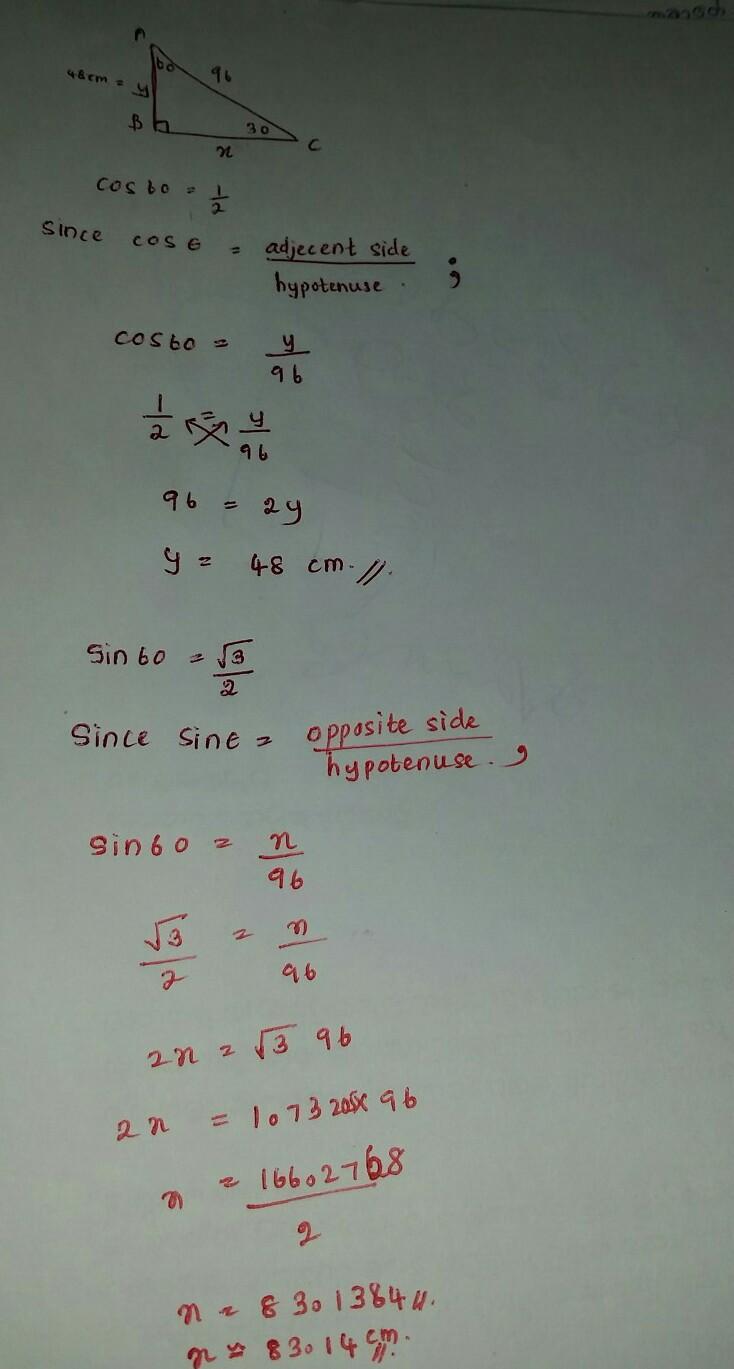 A
60
96
48cm = y
B
30
C
x
cos 60 = 1/2
Since cos θ = adjecent side / hypotenuse . ;
cos 60 = y/96
1/2 = y/96
96 = 2y
y = 48 cm. //.
Sin 60 = √3/2
Since Sin θ = opposite side / hypotenuse . ,
Sin 60 = x/96
√3/2 = x/96
2x = √3 96
2x = 1.73205 × 96
x = 166.2768 / 2
x = 83.1384 //.
x ≈ 83.14 cm. //.